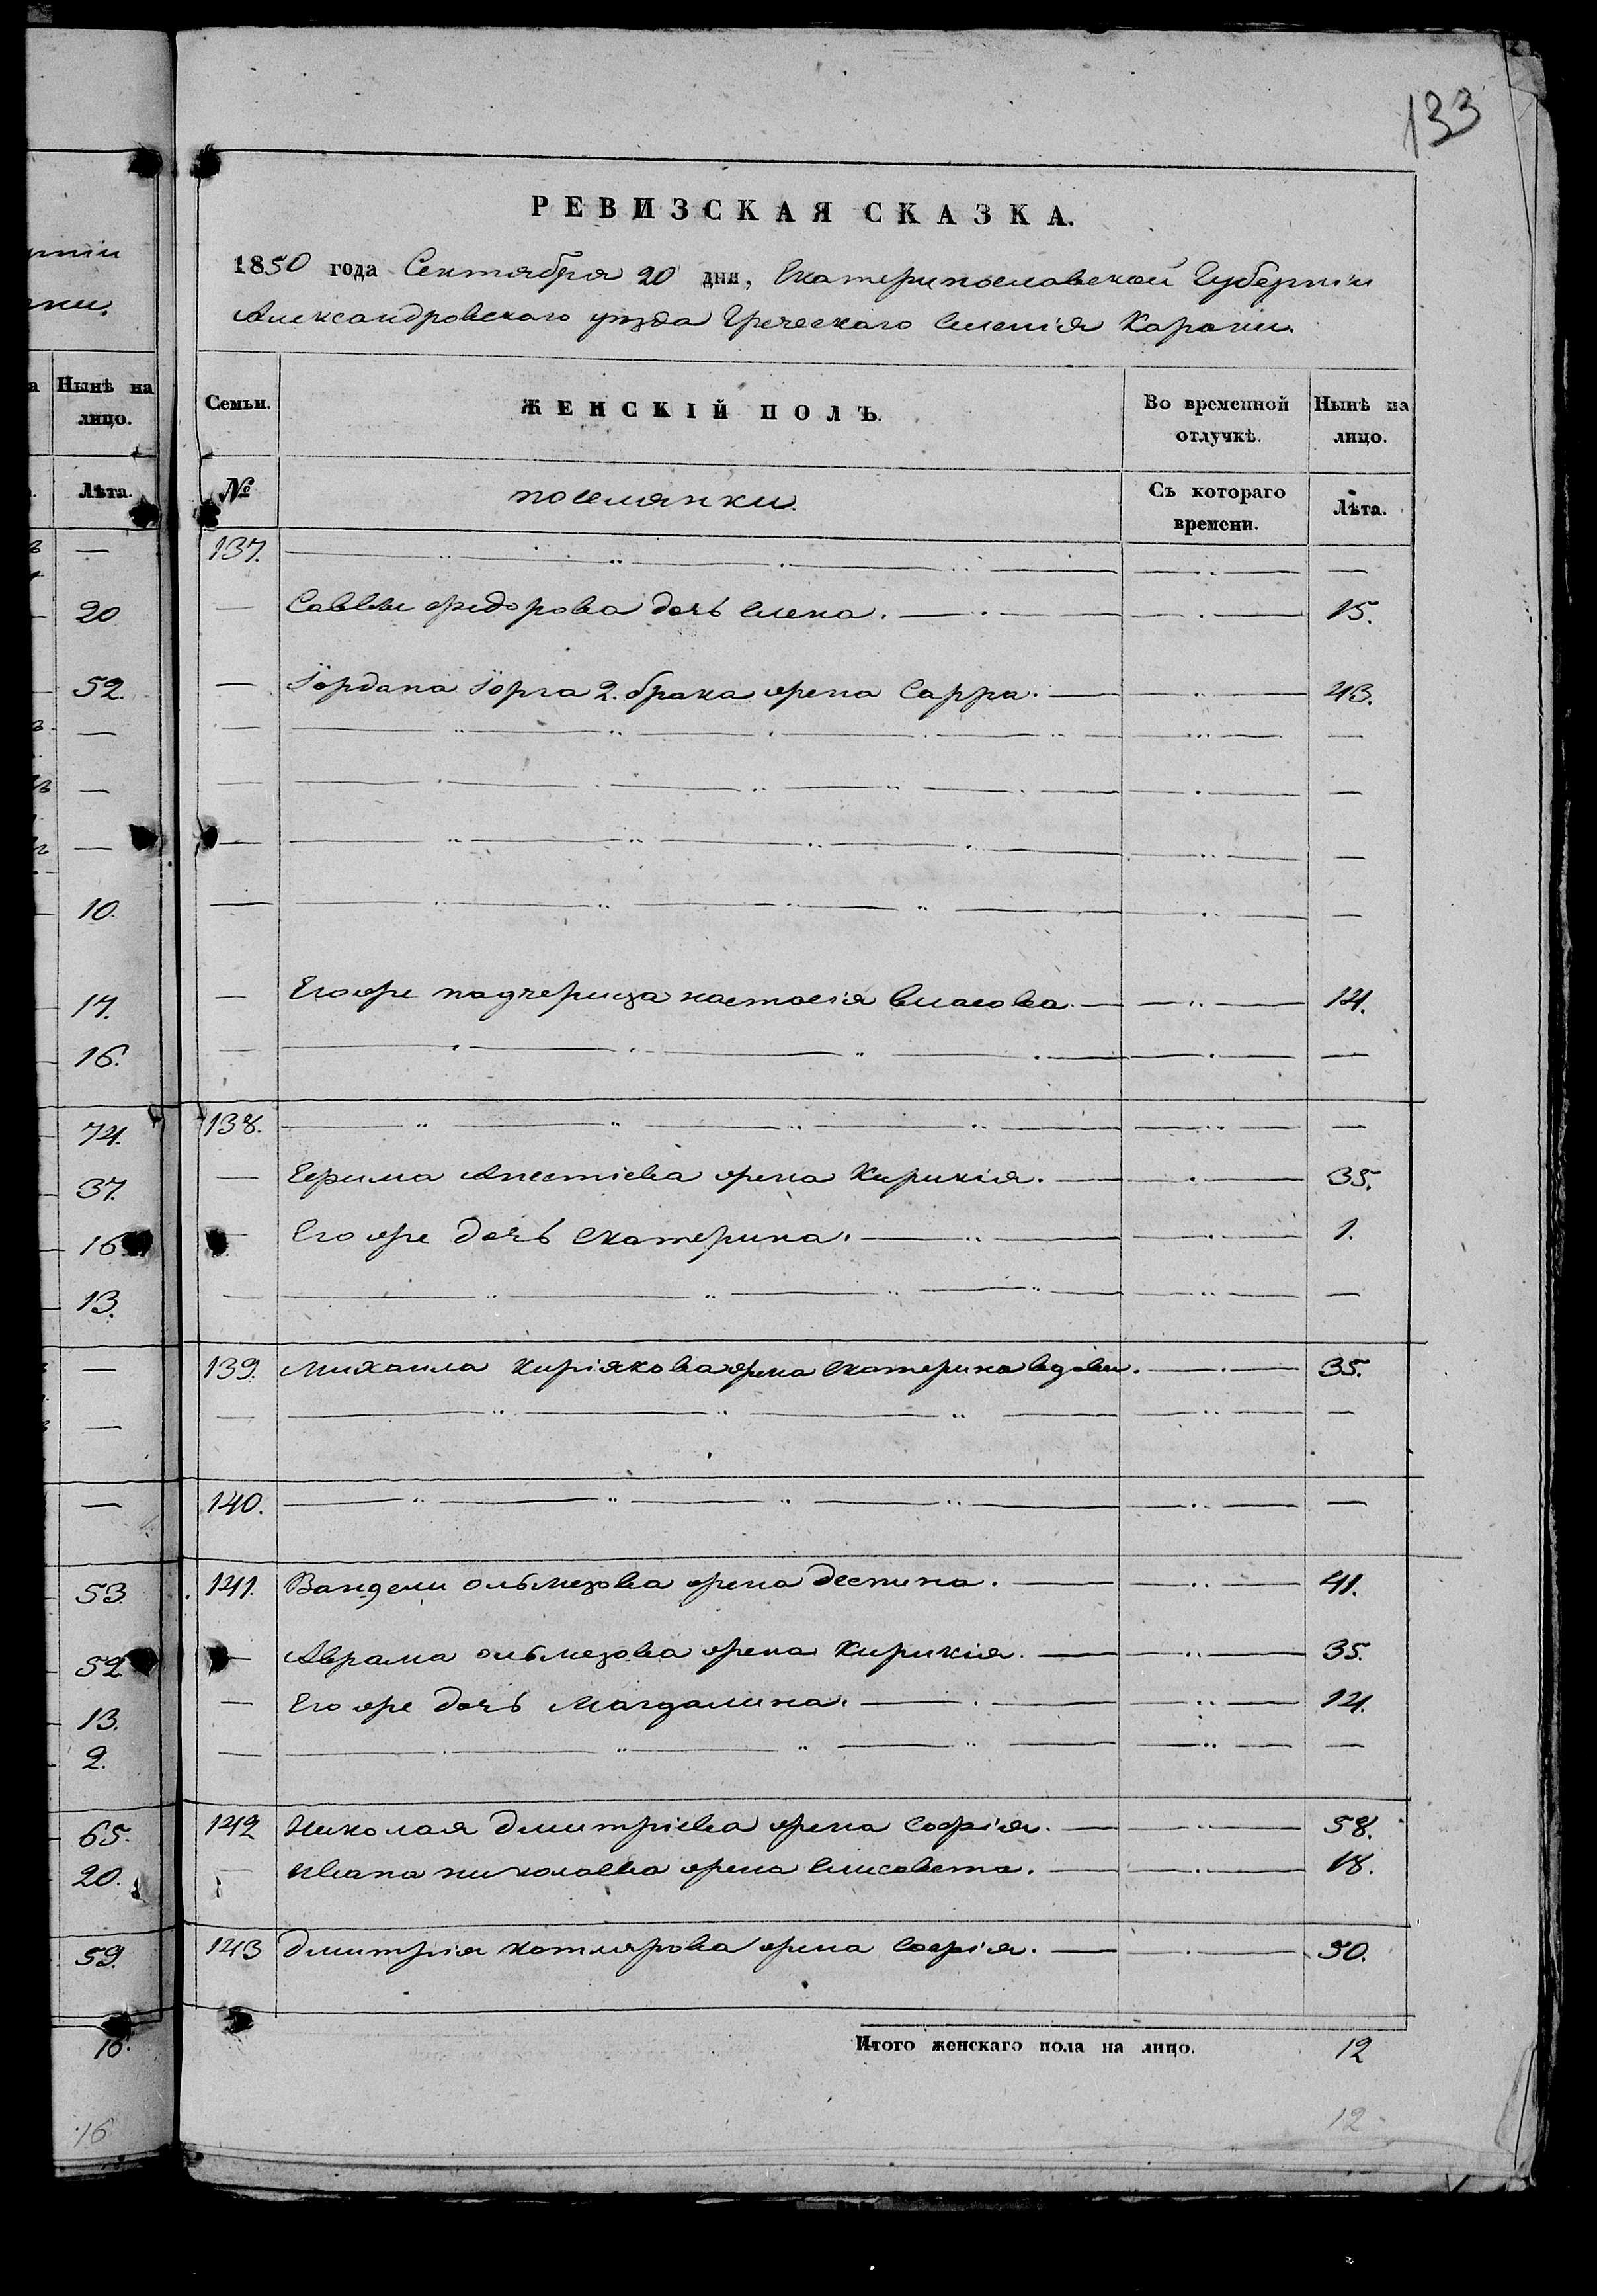 133
РЕВИЗСКАЯ СКАЗКА.
1850 года Сентября 20 дня, Екатеринославской Губерніи
Александровскаго уезда Греческаго Селенія Карани.
Нынѣ на лицо.
Семьи.
ЖЕНСКІЙ ПОЛЪ.
Во временной отлучкѣ.
Нынѣ на лицо.
Лѣта.
№
поселянки.
Съ котораго времени.
Лѣта.
137.
20
Саввы Федорова дочь Елена. 15.
52. Іордана Іорга 2. брака жена Сарра. 43.
10.
17. Его же падчерица настасія власова 14.
16.
74. 138.
37. Ефима Анестіева жена Кирикія. 35.
16 Его же дочь Екатерина. 1.
13.
139. Михаила Киріякова жена Екатерина вдова. 35.
140.
53. 141. Вангели ольмезова жена деспина. 41.
52 Аврама ольмезова жена Кирикія. 35.
13. Его же дочь Магдалина. 14.
2.
65. 142 Николая дмитріева жена Софія. 58.
20. Ивана николаева жена Елисавета. 18.
59. 143 Дмитрія котлярова жена Софія. 50.
16. Итого женскаго пола на лицо. 12
16 12